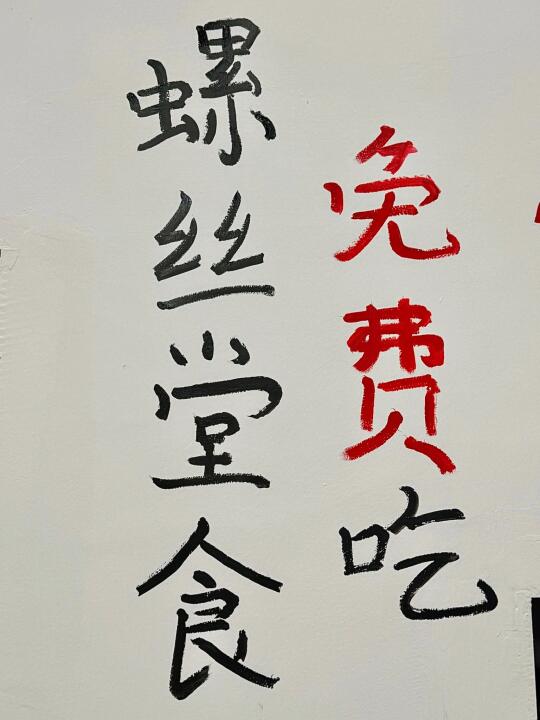 螺丝堂食
免费吃